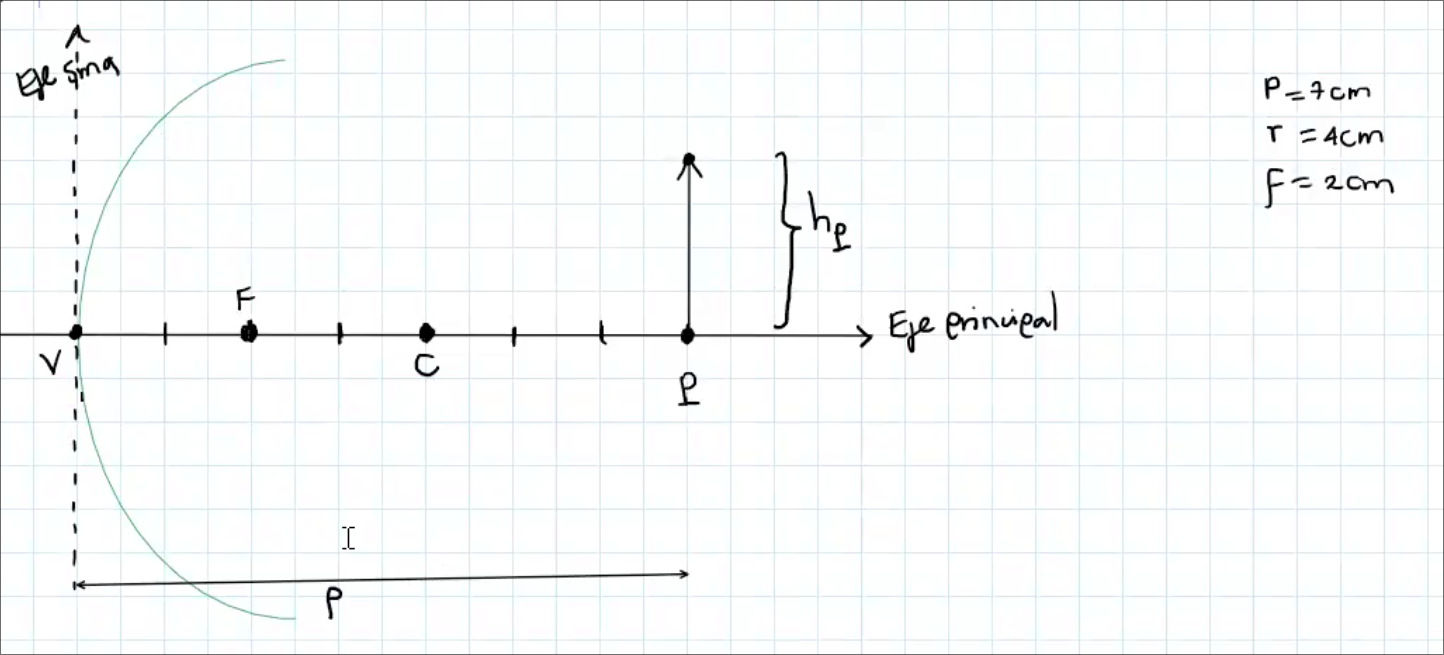 Eje sma
P=7cm
r=4cm
f=2cm
hp
F
Eje principal
V
C
P
P